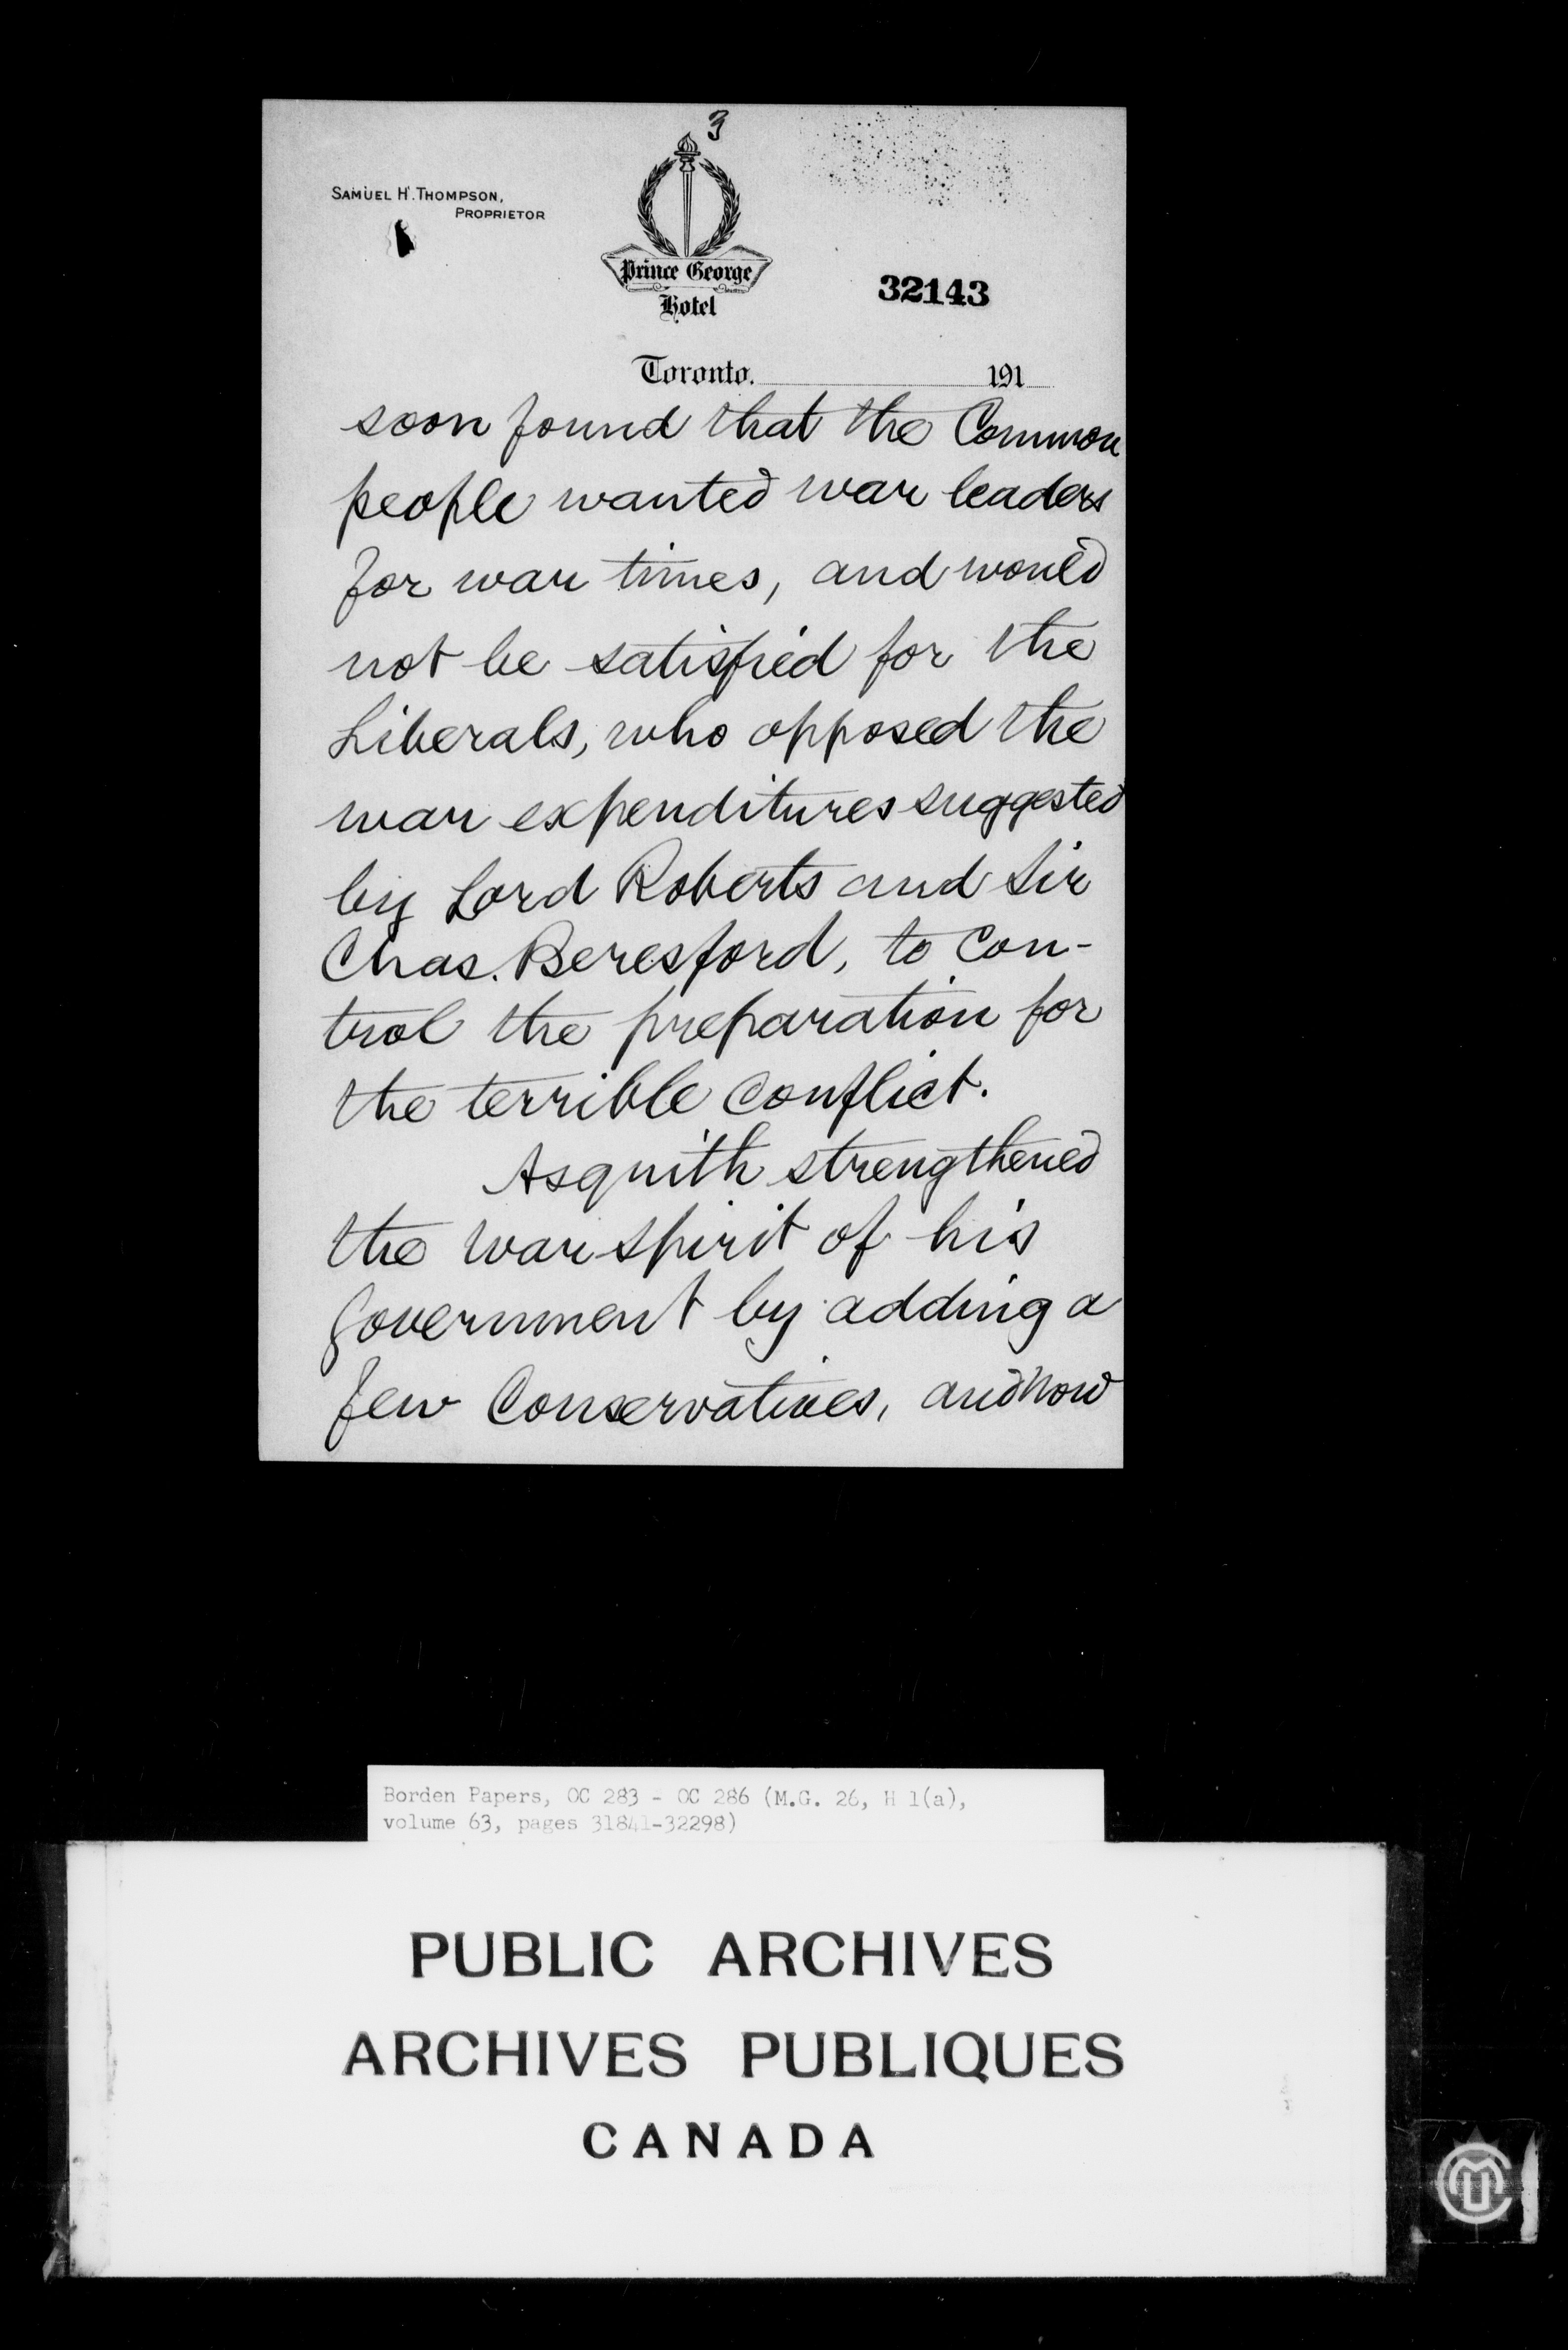 3
SAMUEL H. THOMPSON,
PROPRIETOR
Prince George
Hotel
32143
Toronto. 191
soon found that the Common
people wanted war leaders
for war times, and would
not be satisfied for the
Liberals, who opposed the
war expenditures suggested
by Lord Roberts and Sir
Chas. Beresford, to con-
trol the preparation for
the terrible conflict.
Asquith strengthened
the war spirit of his
Government by adding a
few Conservatives, and now
Borden Papers, OC 283 - OC 286 (M.G. 26, H 1(a),
volume 63, pages 31841-32298)
PUBLIC ARCHIVES
ARCHIVES PUBLIQUES
CANADA